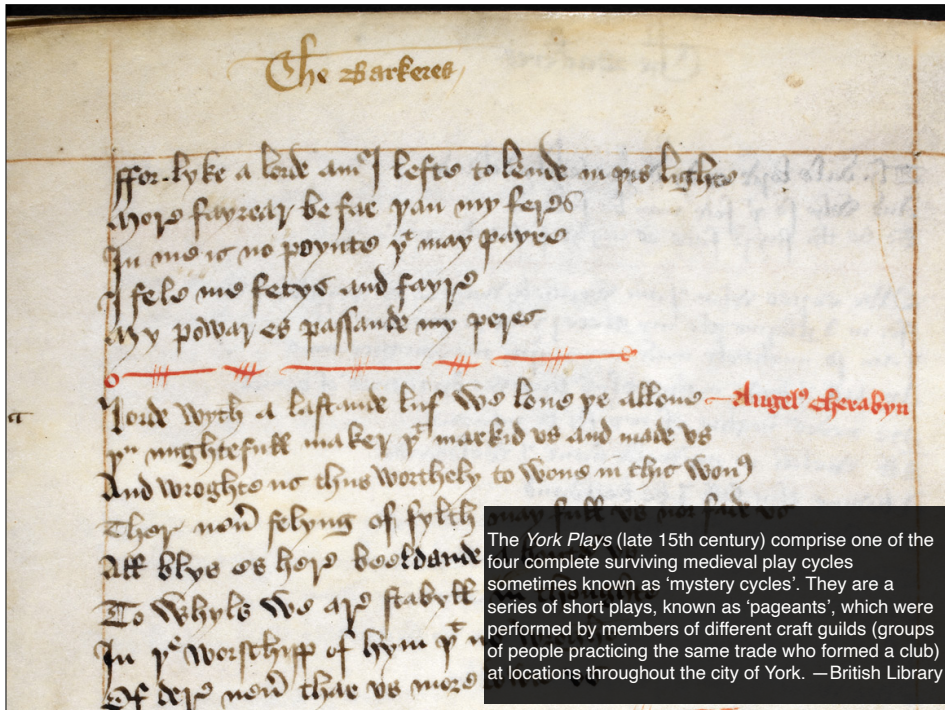 The Barkeres
ffor lyke a lorde am I lefte to lende in þis lighte
More fayrear be far þan my feres
In me is no poynte þt may payre
I fele me fetys and fayre
My powar es passande my peres
Lorde wyth a lastande luf we loue þe allone Angels Cherabyn
þu mightefull maker þt markid vs and made vs
And wroghte us thus worthely to wone in this wone
Ther neuer felyng of fylth may full vs nor fade vs
All blys es here beeldande
To whyls we are stabyll
In þe worschipp of hym þt
Of dere neuer thar vs more
The York Plays (late 15th century) comprise one of the
four complete surviving medieval play cycles
sometimes known as ‘mystery cycles’. They are a
series of short plays, known as ‘pageants’, which were
performed by members of different craft guilds (groups
of people practicing the same trade who formed a club)
at locations throughout the city of York. —British Library